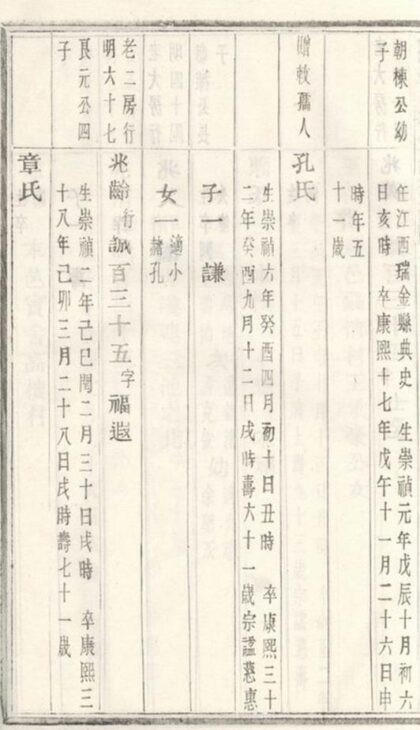 朝棟公幼
子
任江西瑞金縣典史 生崇禎元年戊辰十月初六
日亥時 卒康熙十七年戊午十一月二十六日申
時年五
十一歲
贈敕孺人
孔氏
生崇禎六年癸酉四月初十日丑時 卒康熙三十
二年癸酉九月十二日戌時壽六十一歲宗謚慈惠
子一 謙
女一 適小
赭孔
老二房行
明六十七
良元公四
子
兆齡 行誠百三十五 字福遐
生崇禎二年己巳閏二月三十日戌時 卒康熙三
十八年己卯三月二十八日戌時壽七十一歲
章氏